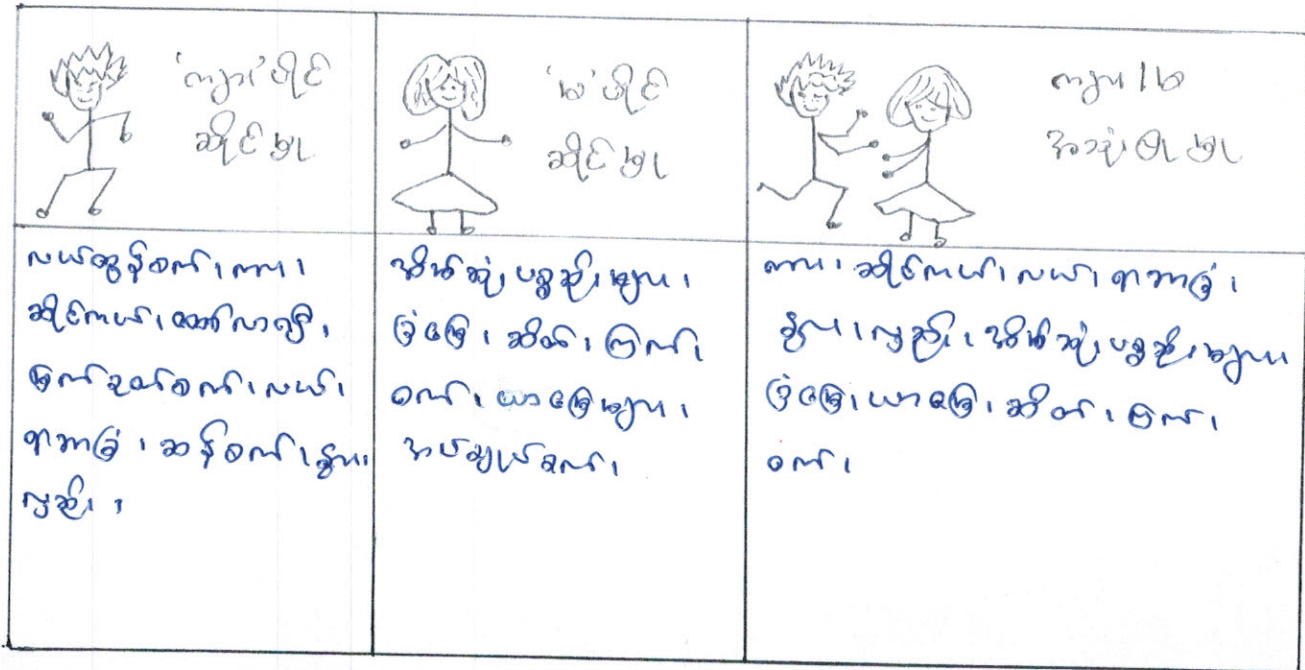 'ကျား' ပိုင်
ဆိုင်မှု
'မ' ပိုင်
ဆိုင်မှု
ကျား/မ
အသုံးပြုမှု
လယ်ထွန်စက်၊ ကား၊
ဆိုင်ကယ်၊ ထော်လာဂျီ၊
မြက်ခုတ်စက်၊ လယ်၊
ရာဘာခြံ၊ ဆန်စက်၊ နွား၊
လှည်း၊
အိမ်သုံးပစ္စည်းများ၊
ခြံမြေ၊ ဆိတ်၊ ကြက်၊
ဝက်၊ ယာမြေများ၊
အပ်ချုပ်စက်၊
ကား၊ ဆိုင်ကယ်၊ လယ်၊ ရာဘာခြံ၊
နွား၊ လှည်း၊ အိမ်သုံးပစ္စည်းများ၊
ခြံမြေ၊ ယာမြေ၊ ဆိတ်၊ ကြက်၊
ဝက်၊